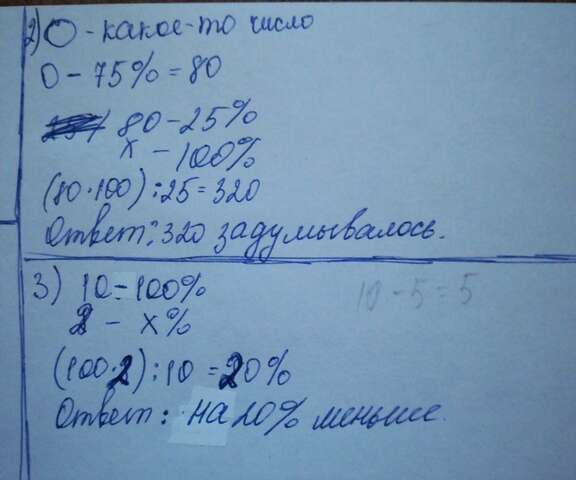 2) О - какое-то число
О - 75% = 80
80 - 25%
х - 100%
(80·100):25=320
Ответ: 320 задумывалось.
3) 10 - 100%
2 - х%
10 - 5 = 5
(100·2):10 = 20%
Ответ: на 20% меньше.